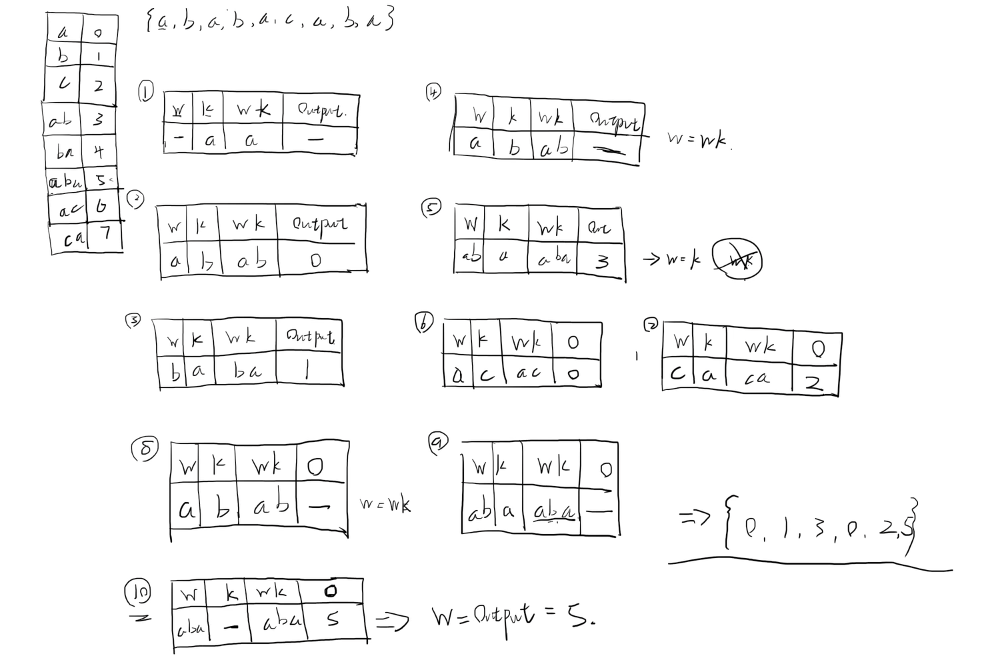 {a, b, a, b, a, c, a, b, a}
a 0
b 1
c 2
ab 3
ba 4
aba 5
ac 6
ca 7
①
w k wk Output.
- a a —
②
w k wk Output
a b ab 0
③
w k wk Output
b a ba 1
④
w k wk Output
a b ab —
w = wk.
⑤
w k wk Out
ab a aba 3
→ w = k
⑥
w k wk 0
a c ac 0
⑦
w k wk 0
c a ca 2
⑧
w k wk 0
a b ab —
w = wk
⑨
w k wk 0
ab a aba —
⑩
w k wk 0
aba - aba 5
⇒ w = Output = 5.
⇒ {0, 1, 3, 0, 2, 5}